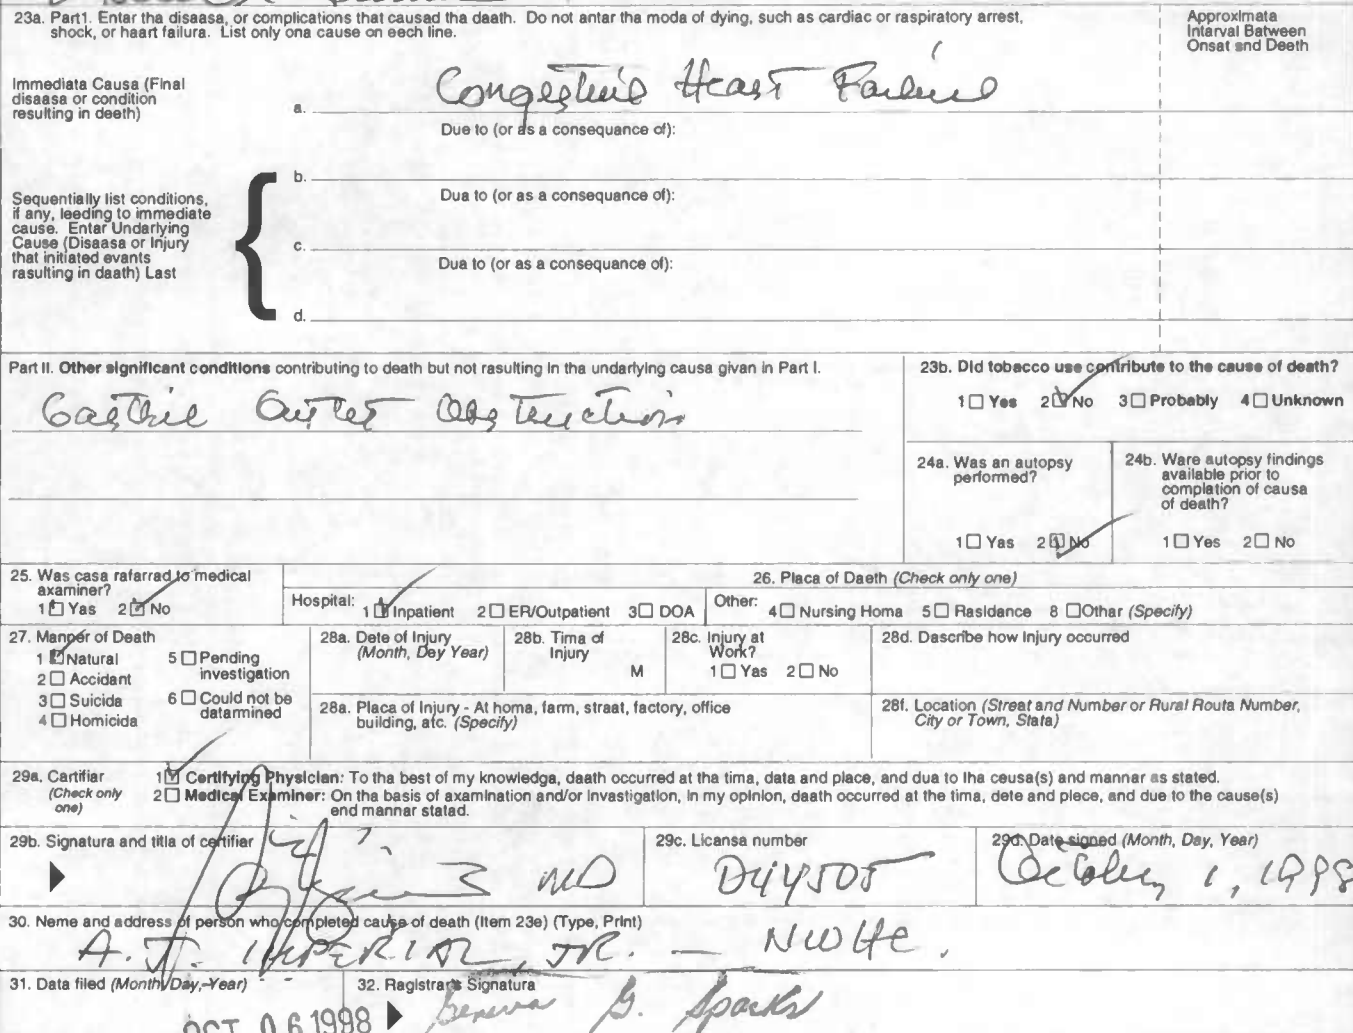 23a. Part1. Enter tha disaasa, or complications that causad tha daath. Do not antar tha moda of dying, such as cardiac or raspiratory arrest,
shock, or haart failura. List only ona cause on eech line.
Approximata
Intarval Batween
Onsat and Deeth
Immediata Causa (Final
disaasa or condition
resulting in deeth)
a. Congestive Heart Failure
Due to (or as a consequence of):
b.
Dua to (or as a consequence of):
Sequentially list conditions,
if any, leeding to immediate
cause. Entar Undarlying
Cause (Disaasa or Injury
that initiated evants
rasulting in daath) Last
c.
Dua to (or as a consequence of):
d.
Part II. Other significant conditions contributing to death but not rasulting in tha undarlying causa givan in Part I.
Gastric Outlet Obstruction
23b. Did tobacco use contribute to the cause of death?
1☐ Yes 2☑ No 3☐ Probably 4☐ Unknown
24a. Was an autopsy
performed?
1☐ Yas 2☑ No
24b. Ware autopsy findings
available prior to
complation of causa
of death?
1☐ Yes 2☐ No
25. Was casa rafarrad to medical
examiner?
1☐ Yas 2☑ No
26. Placa of Daeth (Check only one)
Hospital: 1☑ Inpatient 2☐ ER/Outpatient 3☐ DOA Other: 4☐ Nursing Homa 5☐ Rasidance 8 ☐Othar (Specify)
27. Manner of Death
1 ☑ Natural 5 ☐ Pending investigation
2 ☐ Accidant
3 ☐ Suicida 6 ☐ Could not be datarmined
4 ☐ Homicida
28a. Dete of Injury
(Month, Dey Year)
28b. Tima of
Injury
M
28c. Injury at
Work?
1☐ Yas 2☐ No
28d. Describe how Injury occurred
28a. Placa of Injury - At homa, farm, straat, factory, office
building, atc. (Specify)
28f. Location (Streat and Number or Rural Routa Number,
City or Town, Stata)
29a. Cartifiar
(Check only
one)
1☑ Certifying Physician: To tha best of my knowledga, daath occurred at tha tima, data and place, and dua to lha ceusa(s) and mannar as stated.
2☐ Medical Examiner: On tha basis of axamination and/or Invastigation, in my opinion, daath occurred at the tima, dete and plece, and due to the cause(s)
end mannar statad.
29b. Signatura and titla of cartifiar
MD
29c. Licansa number
D44505
29d. Date signed (Month, Day, Year)
October 1, 1998
30. Name and address of person who completed cause of death (Item 23e) (Type, Print)
A.J. IMPERIAL, JR. — NWHC.
31. Data filed (Month, Day, Year)
OCT 06 1998
32. Ragistrar's Signatura
Geneva G. Sparks